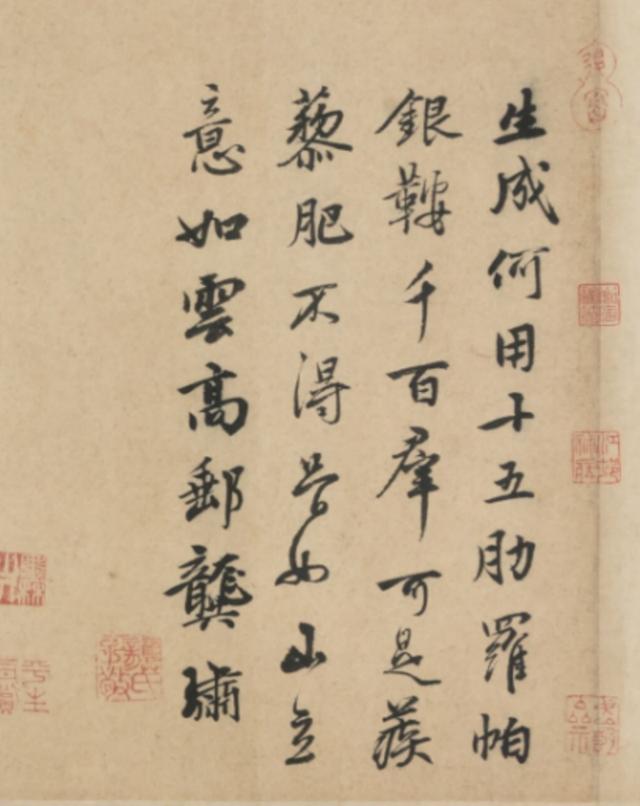 生成何用十五肋羅帕
銀鞍千百羣可是蒺
藜肥不得骨如山立
意如雲高郵龔璛